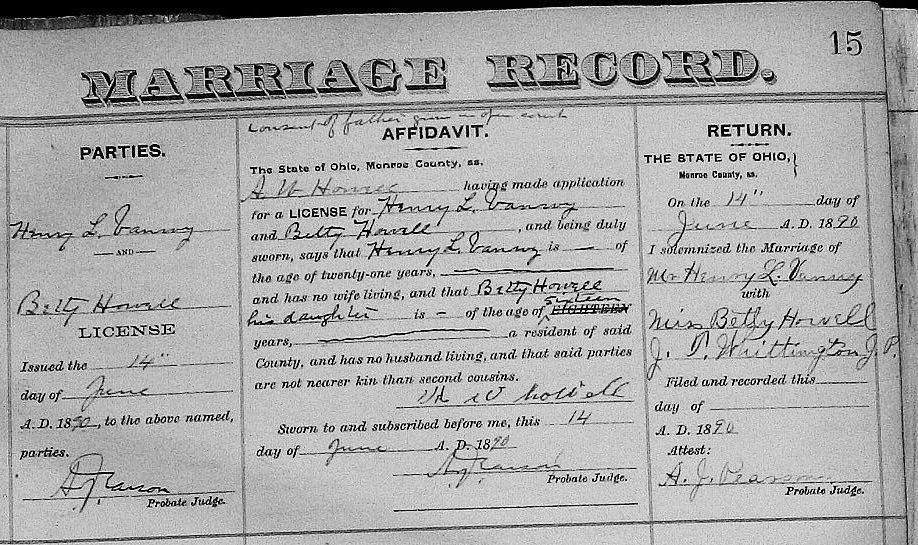 15
MARRIAGE RECORD.
PARTIES.
Henry L. Vanroy
AND
Betty Howell
LICENSE
Issued the 14"
day of June
A. D. 1890, to the above named,
parties.
A J Pearson
Probate Judge.
Consent of father given in open court
AFFIDAVIT.
The State of Ohio, Monroe County, ss.
A. W Howell having made application
for a LICENSE for Henry L. Vanroy
and Betty Howell, and being duly
sworn, says that Henry L. Vanroy is — of
the age of twenty-one years,
and has no wife living, and that Betty Howell
his daughter is — of the age of sixteen EIGHTEEN
years, a resident of said
County, and has no husband living, and that said parties
are not nearer kin than second cousins.
W Howell
Sworn to and subscribed before me, this 14
day of June A. D. 1890
A J Pearson
Probate Judge.
RETURN.
THE STATE OF OHIO,
Monroe County, ss.
On the 14" day of
June A. D. 1890
I solemnized the Marriage of
Mr Henry L. Vanroy
with
Miss Betty Howell
J. T. Whittington J. P.
Filed and recorded this
day of
A. D. 1890
Attest:
A. J. Pearson
Probate Judge.